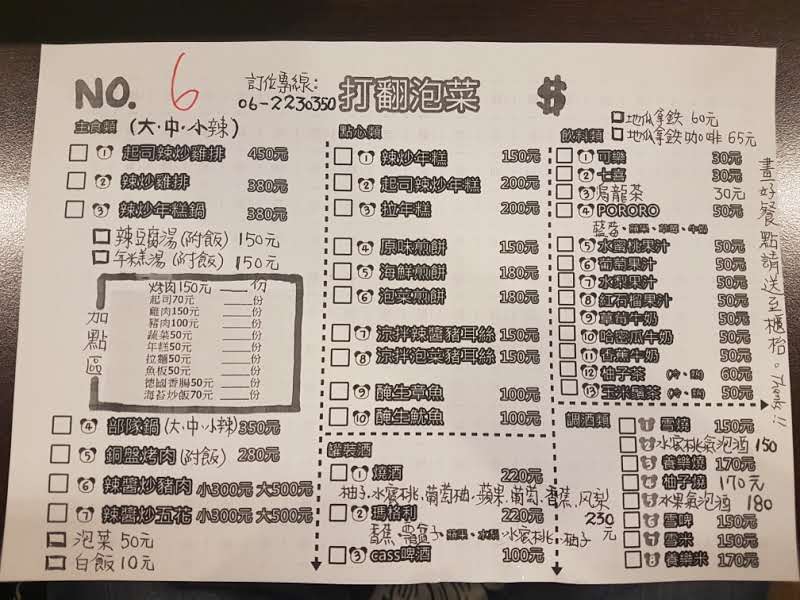 NO. 6
訂位專線:
06-2230350
打翻泡菜
$
主食類 (大·中·小辣)
1 起司辣炒雞排 450元
2 辣炒雞排 380元
3 辣炒年糕鍋 380元
辣豆腐湯(附飯) 150元
年糕湯(附飯) 150元
加點區
烤肉150元 ____份
起司70元 ____份
雞肉150元 ____份
豬肉100元 ____份
蔬菜50元 ____份
年糕50元 ____份
拉麵50元 ____份
魚板50元 ____份
德國香腸50元 ____份
海苔炒飯70元 ____份
4 部隊鍋(大·中·小辣)350元
5 銅盤烤肉(附飯) 280元
6 辣醬炒豬肉 小300元 大500元
7 辣醬炒五花 小300元 大500元
泡菜 50元
白飯 10元
點心類
1 辣炒年糕 150元
2 起司辣炒年糕 200元
3 拉年糕 200元
4 原味煎餅 150元
5 海鮮煎餅 180元
6 泡菜煎餅 180元
7 涼拌辣醬豬耳絲 150元
8 涼拌泡菜豬耳絲 150元
9 醃生章魚 100元
10 醃生魷魚 100元
罐裝酒
1 燒酒 220元
柚子·水蜜桃·葡萄柚·蘋果·葡萄·香蕉·凤梨
2 瑪格利 220元 230元
香蕉·蘋果·水梨·水蜜桃·柚子
3 cass啤酒 100元
地瓜拿鉄 60元
地瓜拿鉄咖啡 65元
飲料類
1 可樂 30元
2 七喜 30元
3 烏龍茶 30元
4 PORORO 50元
藍莓·蘋果·草莓·牛奶
5 水蜜桃果汁 50元
6 葡萄果汁 50元
7 水梨果汁 50元
8 紅石榴果汁 50元
9 草莓牛奶 50元
10 哈密瓜牛奶 50元
11 香蕉牛奶 50元
12 柚子茶 (冷·熱) 60元
13 玉米鬚茶 (冷·熱) 50元
調酒類
1 雪燒 150元
2 水蜜桃氣泡酒 150
3 養樂燒 170元
4 柚子燒 170元
5 水果氣泡酒 180
6 雪啤 150元
7 雪米 150元
8 養樂米 170元
畫好餐點請送至櫃枱。Thanks!!